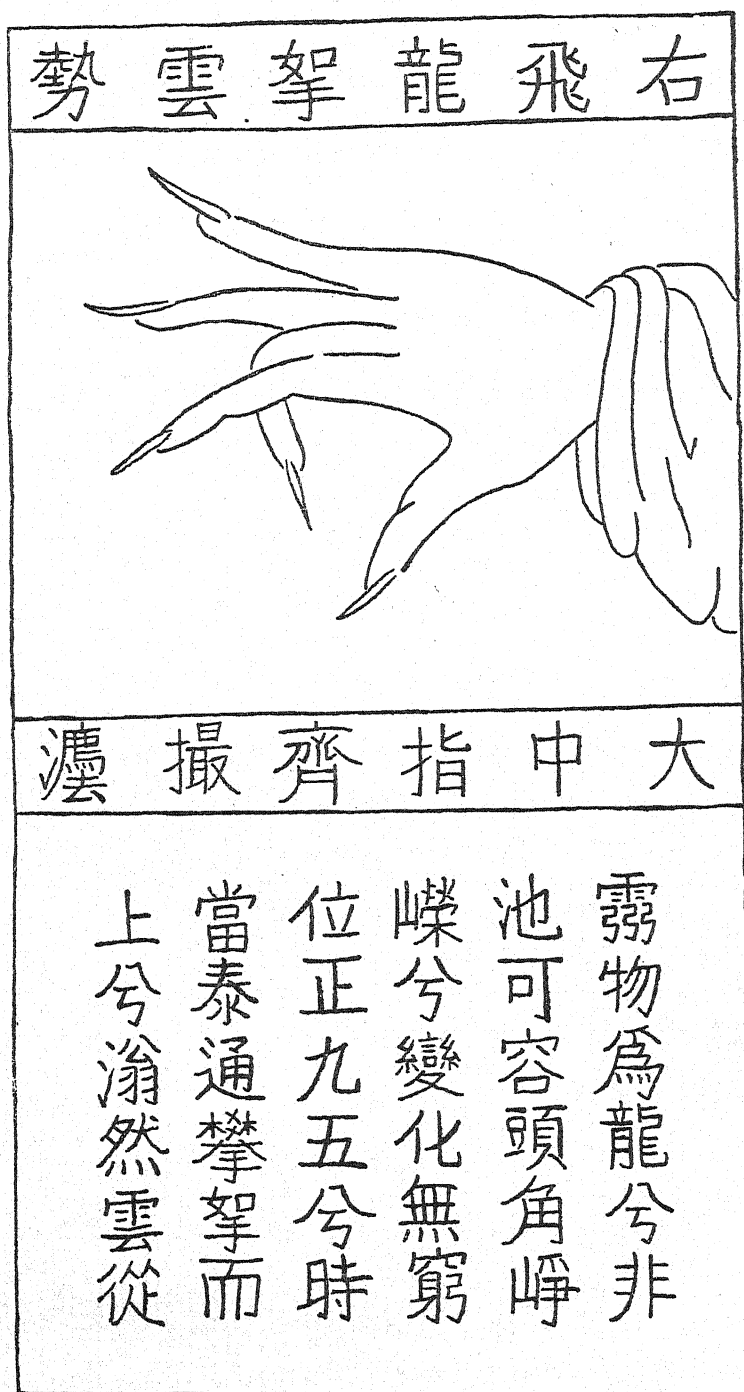 右飛龍挐雲勢
大中指齊撮灋
物爲龍兮非
池可容頭角崢
嶸兮變化無窮
位正九五兮時
當泰通攀挐而
上兮滃然雲從